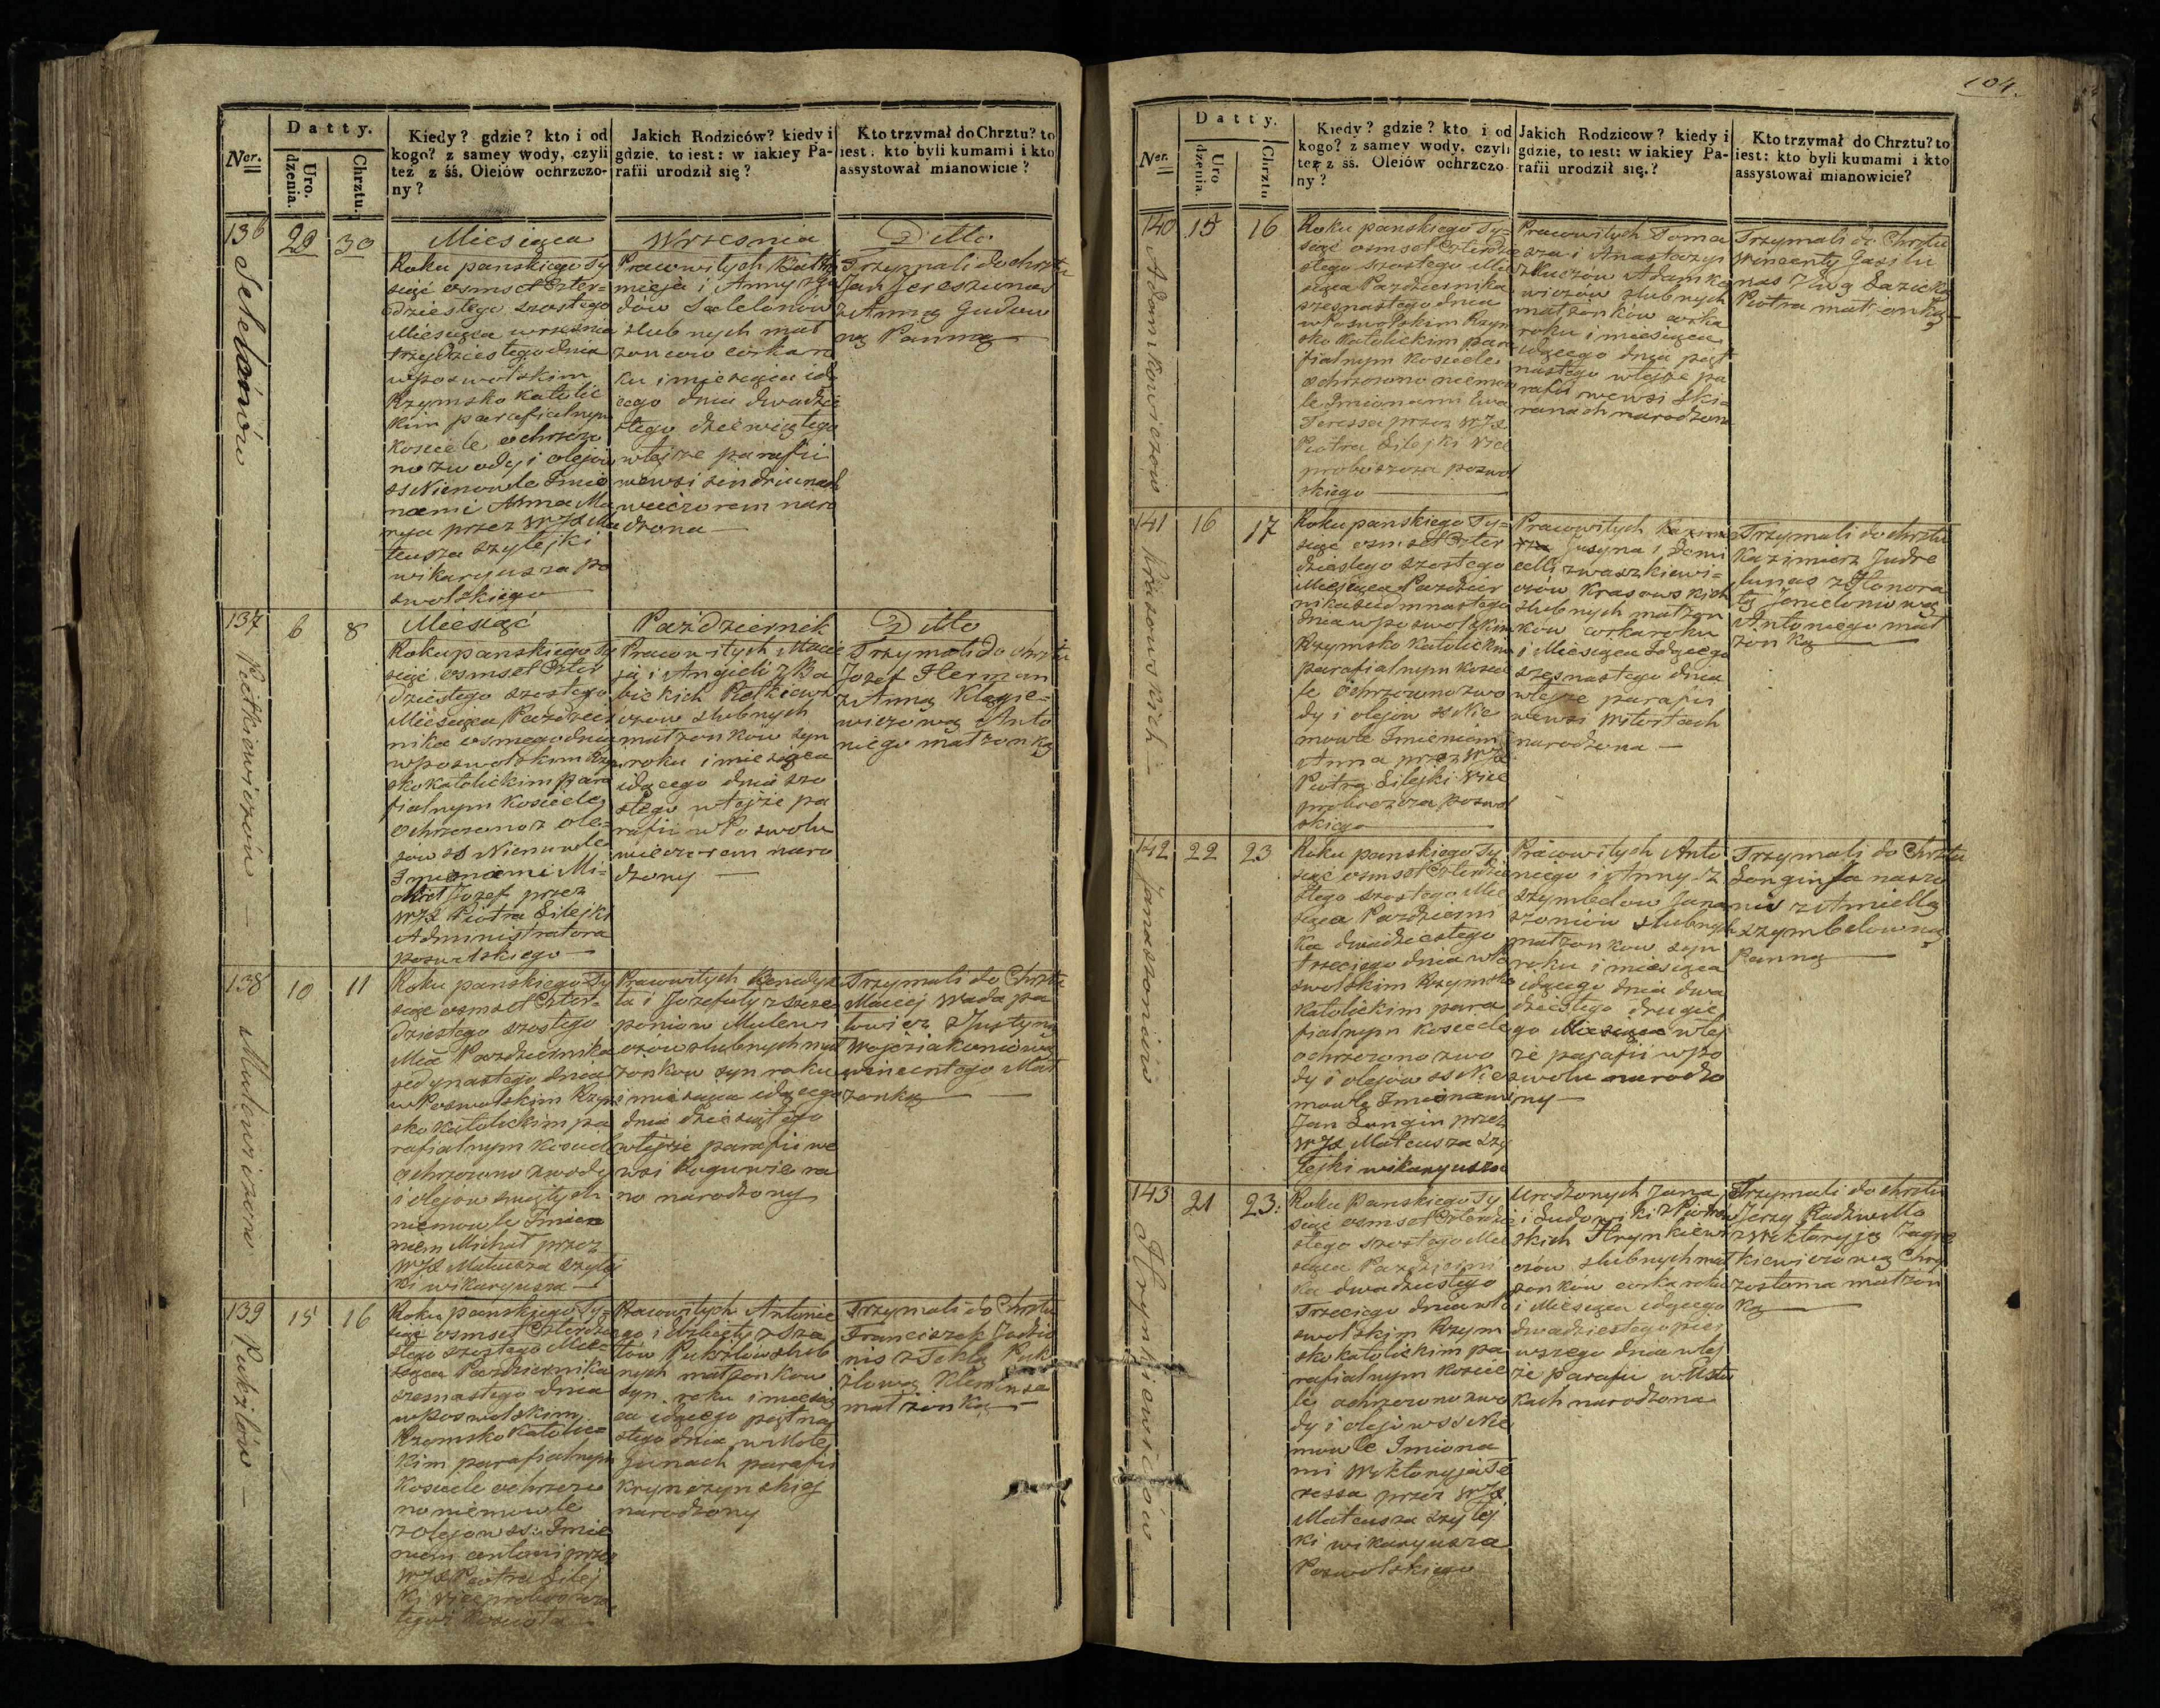 Ner.
Datty.
Uro.
dzenia.
Chrztu.
Kiedy? gdzie? kto i od
kogo? z samey wody, czyli
też z śś. Oleiów ochrzczo-
ny?
Jakich Rodziców? kiedy i
gdzie, to iest: w iakiey Pa-
rafii urodził się?
Kto trzymał do Chrztu? to
iest: kto byli kumami i kto
assystował mianowicie?
136
Selelonów
29
30
Miesiąca
Roku panskiego Ty
siąc osmset Czter
dziestego szostego
Miesiąca września
trzydziestego dnia
w poswolskim
Rzymsko Katolic
kim parafialnym
Kosciele ochrzczo
no z wody i olejow
SS Niemowle Imio
nami Anna Ma
ryja przez WJX Ma
teusza Szylejki
wikaryusza po
swolskiego
Wrzesnia
Pracowitych
mieja i Anny z
dow Selelonów
slubnych mał
żonkow corka ro
ku i miesiąca idą
cego dnia dwadzie
stego dziewiątego
w tejże parafii
we wsi
wieczorem naro
dzona
Ditto
Trzymali do chrztu
Jan Jereszunas
z Anną Gudow
ną Panną
137
Pietkiewiczów
6
8
Miesiąc
Roku panskiego Ty
siąc osmset Czter
dziestego szostego
Miesiąca Pazdzier
nika osmego dnia
w poswolskim Rzym
sko katolickim para
fialnym Kosciele
ochrzczono z ole-
jow SS Niemowle
Imionami Mi-
chał Jozef przez
WJX Piotra Silejki
Administratora
poswolskiego
Październik
Pracowitych Macie
ja i Angieli z Ba
bickich Petkiewi
czow slubnych
małżonków syn
roku i miesiąca
idącego dnia szo
stego w tejże pa
rafii w Poswolu
wieczorem naro
dzony
Ditto
Trzymali do chrztu
Jozef Herman
z Anną
wiczową Anto
niego małżonką
138
Mulewiczow
10
11
Roku panskiego Ty
siąc osmset Czter-
dziestego szostego
Mca Pazdziernika
jedynastego dnia
w Poswolskim Rzym
sko katolickim pa
rafialnym Kosciele
ochrzczono z wody
i olejow swiętych
niemowle Imie
niem Michał przez
WJX Mateusza Szylej
ki wikaryusza
Pracowitych Benedyk
ta i Jozefaty z
poniow Mulewi
czow slubnych mał
żonkow syn roku
i miesiąca idącego
dnia dziesiątego
w tejże parafii we
wsi ra
no narodzony
Trzymali do Chrztu
Maciej Wada pa
łowicz z Justyną
wincentego Mał
żonką
139
Pukzlów
15
16
Roku panskiego Ty-
siąc osmset Czterdzie
stego szostego Mie-
siąca Pazdziernika
szesnastego dnia
w poswolskim
Rzymsko Katolic-
kim parafialnym
Kosciele ochrzczo
no niemowle
z Olejow ss. Imie
niem antoni przez
WJX Piotra Silej
ki viceproboszcza
tegoż Kosciola
Pracowitych Antonie
go i Elzbiety z Sza
tow Pukzlow slub
nych małżonkow
syn roku i miesią
ca idącego piętna
stego dnia w
parafii
Krynczynskiej
narodzony
Trzymali do Chrztu
Franciszek
nis z Teklą Puk
złową Klemensa
małżonką
104.
Ner.
Datty.
Uro
dzenia.
Chrztu
Kiedy? gdzie? kto i od
kogo? z samey wody, czyli
też z śś. Oleiów ochrzczo-
ny?
Jakich Rodziców? kiedy i
gdzie, to iest: w iakiey Pa-
rafii urodził się.?
Kto trzymał do Chrztu? to
iest: kto byli kumami i kto
assystował mianowicie?
140
Adamkowiczow
15
16
Roku panskiego Ty-
siąc osmset Czterdzie
stego szostego Mie
siąca Pazdziernika
szesnastego dnia
w Poswolskim Rzym
sko katolickim para
fialnym Kosciele
ochrzczono niemow
le Imionami Ewa
Teressa przez WJX
Piotra Silejki vice
proboszcza poswol
skiego
Pracowitych Toma
sza i Anastazyi
Adamko
wiczów slubnych
małżonków corka
roku i miesiąca
idącego dnia pięt
nastego w tejże pa
rafii we wsi Ski-
ranach narodzona
Trzymali do Chrztu
Wincenty
nas z
Piotra małżonką
141
Krasowskich
16
17
Roku panskiego Ty-
siąc osmset Czter
dziestego szostego
Miesiąca Pazdzier
nika siedmnastego
dnia w poswolskim
Rzymsko Katolickim
parafialnym Koscie
le Ochrzczono z wo
dy i olejow SS Nie
mowle Imieniem
Anna przez WJX
Piotra Silejki vice
proboszcza poswol
skiego
Pracowitych
Justyna i Domi
celli z
czów Krasowskich
slubnych małżon
ków corka roku
i Miesiąca Idącego
szesnastego dnia
w tejże parafii
we wsi
narodzona
Trzymali do chrztu
Kazimierz Judre
lunas z Honora
tą
Antoniego mał
żonką
142
Janaszoniow
22
23
Roku panskiego Ty
siąc osmset Czterdzie
stego szostego Mie
siąca Pazdzierni
ka dwudziestego
trzeciego dnia w Po
swolskim Rzymsko
Katolickim para
fialnym Kosciele
ochrzczono z wo
dy i olejow SS Nie
mowle Imionami
Jan Longin przez
WJX Mateusza Szy
lejki wikaryusza
Pracowitych Anto
niego i Anny z
Szymbelow Jana
szoniow slubnych
małżonkow syn
roku i miesiąca
idącego dnia dwu
dziestego drugie
go Miesiąca w tej
że parafii w Po
swolu narodzo
ny
Trzymali do Chrztu
Longin Janaszo
nis z Anielą
Szymbelowną
Panną
143
Hrynkiewiczów
21
23.
Roku Panskiego Ty
siąc osmset Czterdzie
stego szostego Mie
siąca Pazdzierni
ka dwudziestego
Trzeciego dnia w Po
swolskim Rzym
sko katolickim pa
rafialnym Koscie
le ochrzczono z wo
dy i olejów SS Nie
mowle Imiona
mi Wiktoryja Te
ressa przez WJX
Mateusza Szylej
ki wikaryusza
Poswolskiego
Urodzonych Jana
i Ludowiki z Piotrow
skich Hrynkiewi
czów slubnych mał
żonków corka roku
i Miesiąca idącego
dwadziestego pier
wszego dnia w tej
że parafii w Ustu
kach narodzona
Trzymali do chrztu
Jerzy Radziwiłło
z Wiktoryją
kiewiczową Chry
zostoma małżon
ką